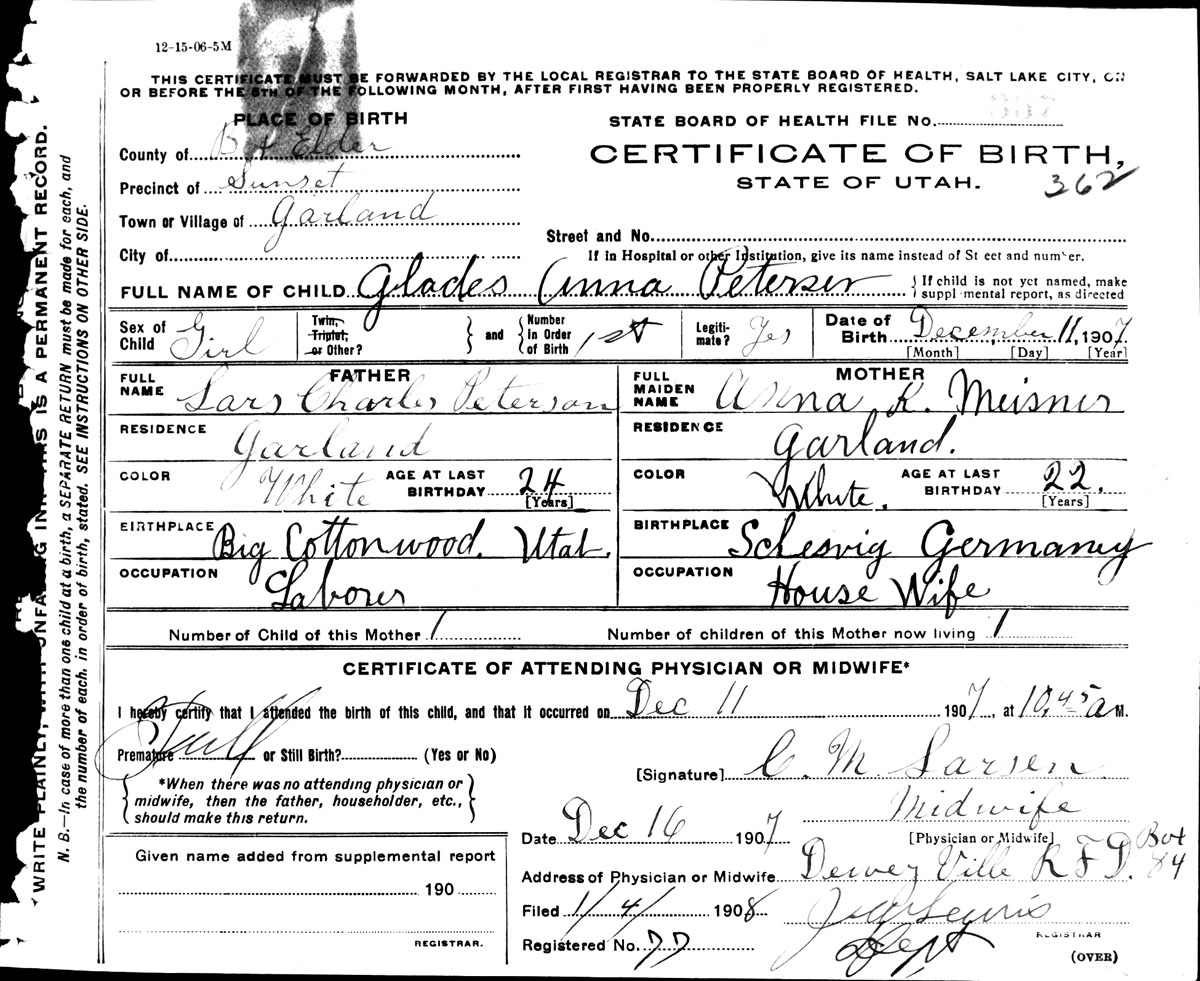 12-15-06-5M
THIS CERTIFICATE MUST BE FORWARDED BY THE LOCAL REGISTRAR TO THE STATE BOARD OF HEALTH, SALT LAKE CITY, ON
OR BEFORE THE 5TH OF THE FOLLOWING MONTH, AFTER FIRST HAVING BEEN PROPERLY REGISTERED.
PLACE OF BIRTH
STATE BOARD OF HEALTH FILE No.
County of Box Elder
CERTIFICATE OF BIRTH,
Precinct of Sunset
STATE OF UTAH. 362
Town or Village of Garland
Street and No.
City of
If in Hospital or other Institution, give its name instead of Street and number.
FULL NAME OF CHILD Glades Anna Petersen
{ If child is not yet named, make
supplemental report, as directed
Sex of Child Girl
Twin, Triplet, or Other? } and { Number In Order of Birth 1st
Legiti-mate? Yes
Date of Birth December 11, 1907
[Month] [Day] [Year]
FATHER
FULL NAME Lars Charles Peterson
RESIDENCE Garland
COLOR White
AGE AT LAST BIRTHDAY 24 [Years]
BIRTHPLACE Big Cottonwood. Utah.
OCCUPATION Laborer
MOTHER
FULL MAIDEN NAME Anna K. Meisner
RESIDENCE Garland.
COLOR White.
AGE AT LAST BIRTHDAY 22. [Years]
BIRTHPLACE Schesvig Germaney
OCCUPATION House Wife
Number of Child of this Mother 1
Number of children of this Mother now living 1
CERTIFICATE OF ATTENDING PHYSICIAN OR MIDWIFE*
I hereby certify that I attended the birth of this child, and that it occurred on Dec 11 1907, at 10,45 a M.
Premature or Still Birth? (Yes or No)
[Signature] C. M. Larsen
*When there was no attending physician or
midwife, then the father, householder, etc.,
should make this return.
Midwife
Date Dec 16 1907
[Physician or Midwife]
Given name added from supplemental report
Address of Physician or Midwife Dewey Ville R F D. Box 84
190
Filed 1/4/ 1908
REGISTRAR.
REGISTRAR
Registered No. 77
Dept
(OVER)
WRITE PLAINLY, WITH UNFADING INK—THIS IS A PERMANENT RECORD.
N. B.—In case of more than one child at a birth, a SEPARATE RETURN must be made for each, and
the number of each, in order of birth, stated. SEE INSTRUCTIONS ON OTHER SIDE.